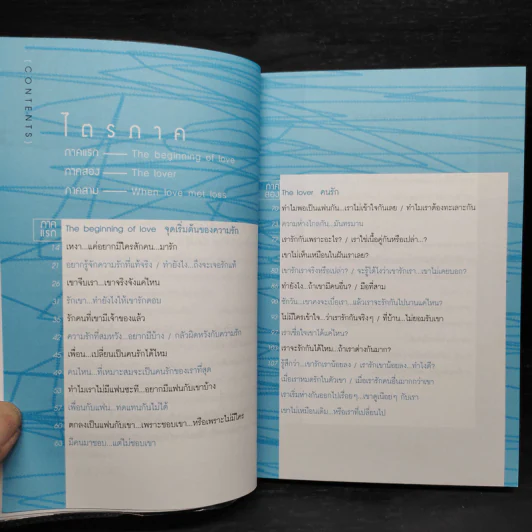 (CONTENTS)
ไตรภาค
ภาคแรก — The beginning of love
ภาคสอง — The lover
ภาคสาม — When love met loss
ภาคแรก
The beginning of love จุดเริ่มต้นของความรัก
14 เหงา...แค่อยากมีใครสักคน...มารัก
21 อยากรู้จักความรักที่แท้จริง / ทำยังไง...ถึงจะเจอรักแท้
26 เขาจีบเรา...เขาจริงจังแค่ไหน
31 รักเขา...ทำยังไงให้เขารักตอบ
35 รักคนที่เขามีเจ้าของแล้ว
42 ความรักที่สมหวัง...อยากมีบ้าง / กลัวผิดหวังกับความรัก
45 เพื่อน...เปลี่ยนเป็นคนรักได้ไหม
49 คนไหน...ที่เหมาะสมจะเป็นคนรักของเราที่สุด
52 ทำไมเราไม่มีแฟนซะที...อยากมีแฟนกับเขาบ้าง
57 เพื่อนกับแฟน...ทดแทนกันไม่ได้
60 ตกลงเป็นแฟนกับเขา...เพราะชอบเขา...หรือเพราะไม่มีใคร
63 มีคนมาชอบ...แต่ไม่ชอบเขา
ภาคสอง
The lover คนรัก
ทำไมพอเป็นแฟนกัน...เราไม่เข้าใจกันเลย / ทำไมเราต้องทะเลาะกัน
ความห่างไกลกัน...มันทรมาน
เรารักกันเพราะอะไร? / เราใช่เนื้อคู่กันหรือเปล่า...?
เขาไม่เห็นเหมือนในฝันเราเลย?
เขารักเราจริงหรือเปล่า? / จะรู้ได้ไงว่าเขารักเรา...เขาไม่เคยบอก?
ทำยังไง...ถ้าเขามีคนอื่น? / มือที่สาม
ซักวัน...เขาคงจะเบื่อเรา...แล้วเราจะรักกันไปนานแค่ไหน?
ไม่มีใครเข้าใจ...ว่าเรารักกันจริงๆ / ที่บ้าน...ไม่ยอมรับเขา
เราเชื่อใจเขาได้แค่ไหน?
เราจะรักกันได้ไหม...ถ้าเราต่างกันมาก?
รู้สึกว่า...เขารักเราน้อยลง / เรารักเขาน้อยลง...ทำไงดี?
เมื่อเราหมดรักในตัวเขา / เมื่อเรารักคนอื่นมากกว่าเขา
เราเริ่มห่างกันออกไปเรื่อยๆ...เขาดูเฉยๆ กับเรา
เขาไม่เหมือนเดิม...หรือเราที่เปลี่ยนไป